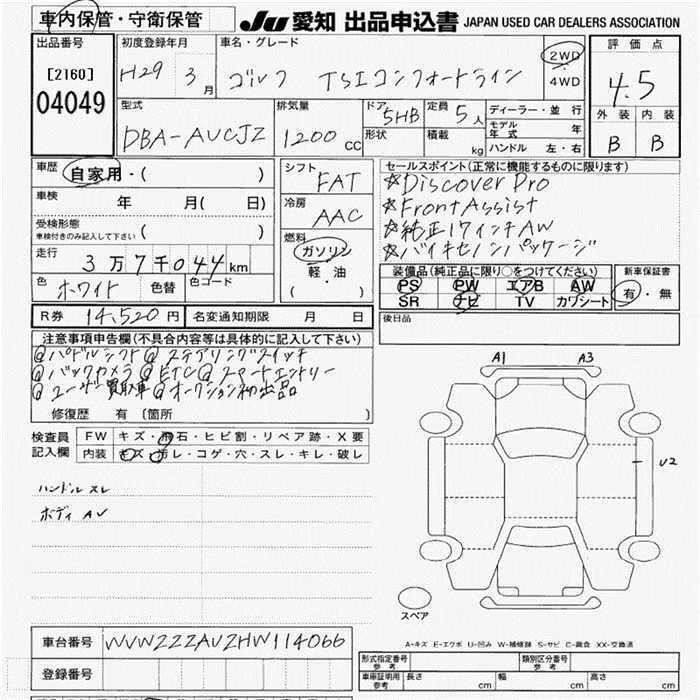 車内保管・守衛保管 JU 愛知 出品申込書 JAPAN USED CAR DEALERS ASSOCIATION
出品番号 [2160] 04049
初度登録年月 H29 3月
車名・グレード ゴルフ TSIコンフォートライン
2WD・4WD
評価点 4.5
外装 内装
B B
型式 DBA-AUCJZ
排気量 1200cc
ドア 5HB
形状
定員 5人
積載 kg
ディーラー・並行
モデル年式 年
ハンドル 左・右
車歴 自家用・( )
車検 年 月( 日)
受検形態 ( )
車検付きのみ記入して下さい
走行 3万7千044km
色 ホワイト 色替 色コード
シフト FAT
冷房 AAC
燃料 ガソリン
軽・油
( ・ )
セールスポイント(正常に機能するものに限ります)
☆Discover Pro
☆Front Assist
☆純正17インチAW
☆バイキセノンパッケージ
装備品(純正品に限り○をつけてください)
PS PW エアB AW
SR ナビ TV カワシート
新車保証書
有・無
R券 14,520円 名変通知期限 月 日
後日品
注意事項申告欄(不具合内容等は具体的に記入して下さい)
@パドルシフト@ステアリングスイッチ
@バックカメラ@ETC@スマートエントリー
@ユーザー買取車@オークション初出品
修復歴 有 〔箇所 〕
検査員記入欄
FW キズ・飛石・ヒビ割・リペア跡・X要
内装 キズ・汚レ・コゲ・穴・スレ・キレ・破レ
ハンドル スレ
ボディ AU
A1 A3
U2
スペア
A-キズ E-エクボ U-凹み W-補修跡 S-サビ C-腐食 XX-交換済
車台番号 WVWZZZAUZHW114066
登録番号
形式指定番号 参考 類別区分番号 参考
車庫証明用 参考 長さ cm 幅 cm 高さ cm